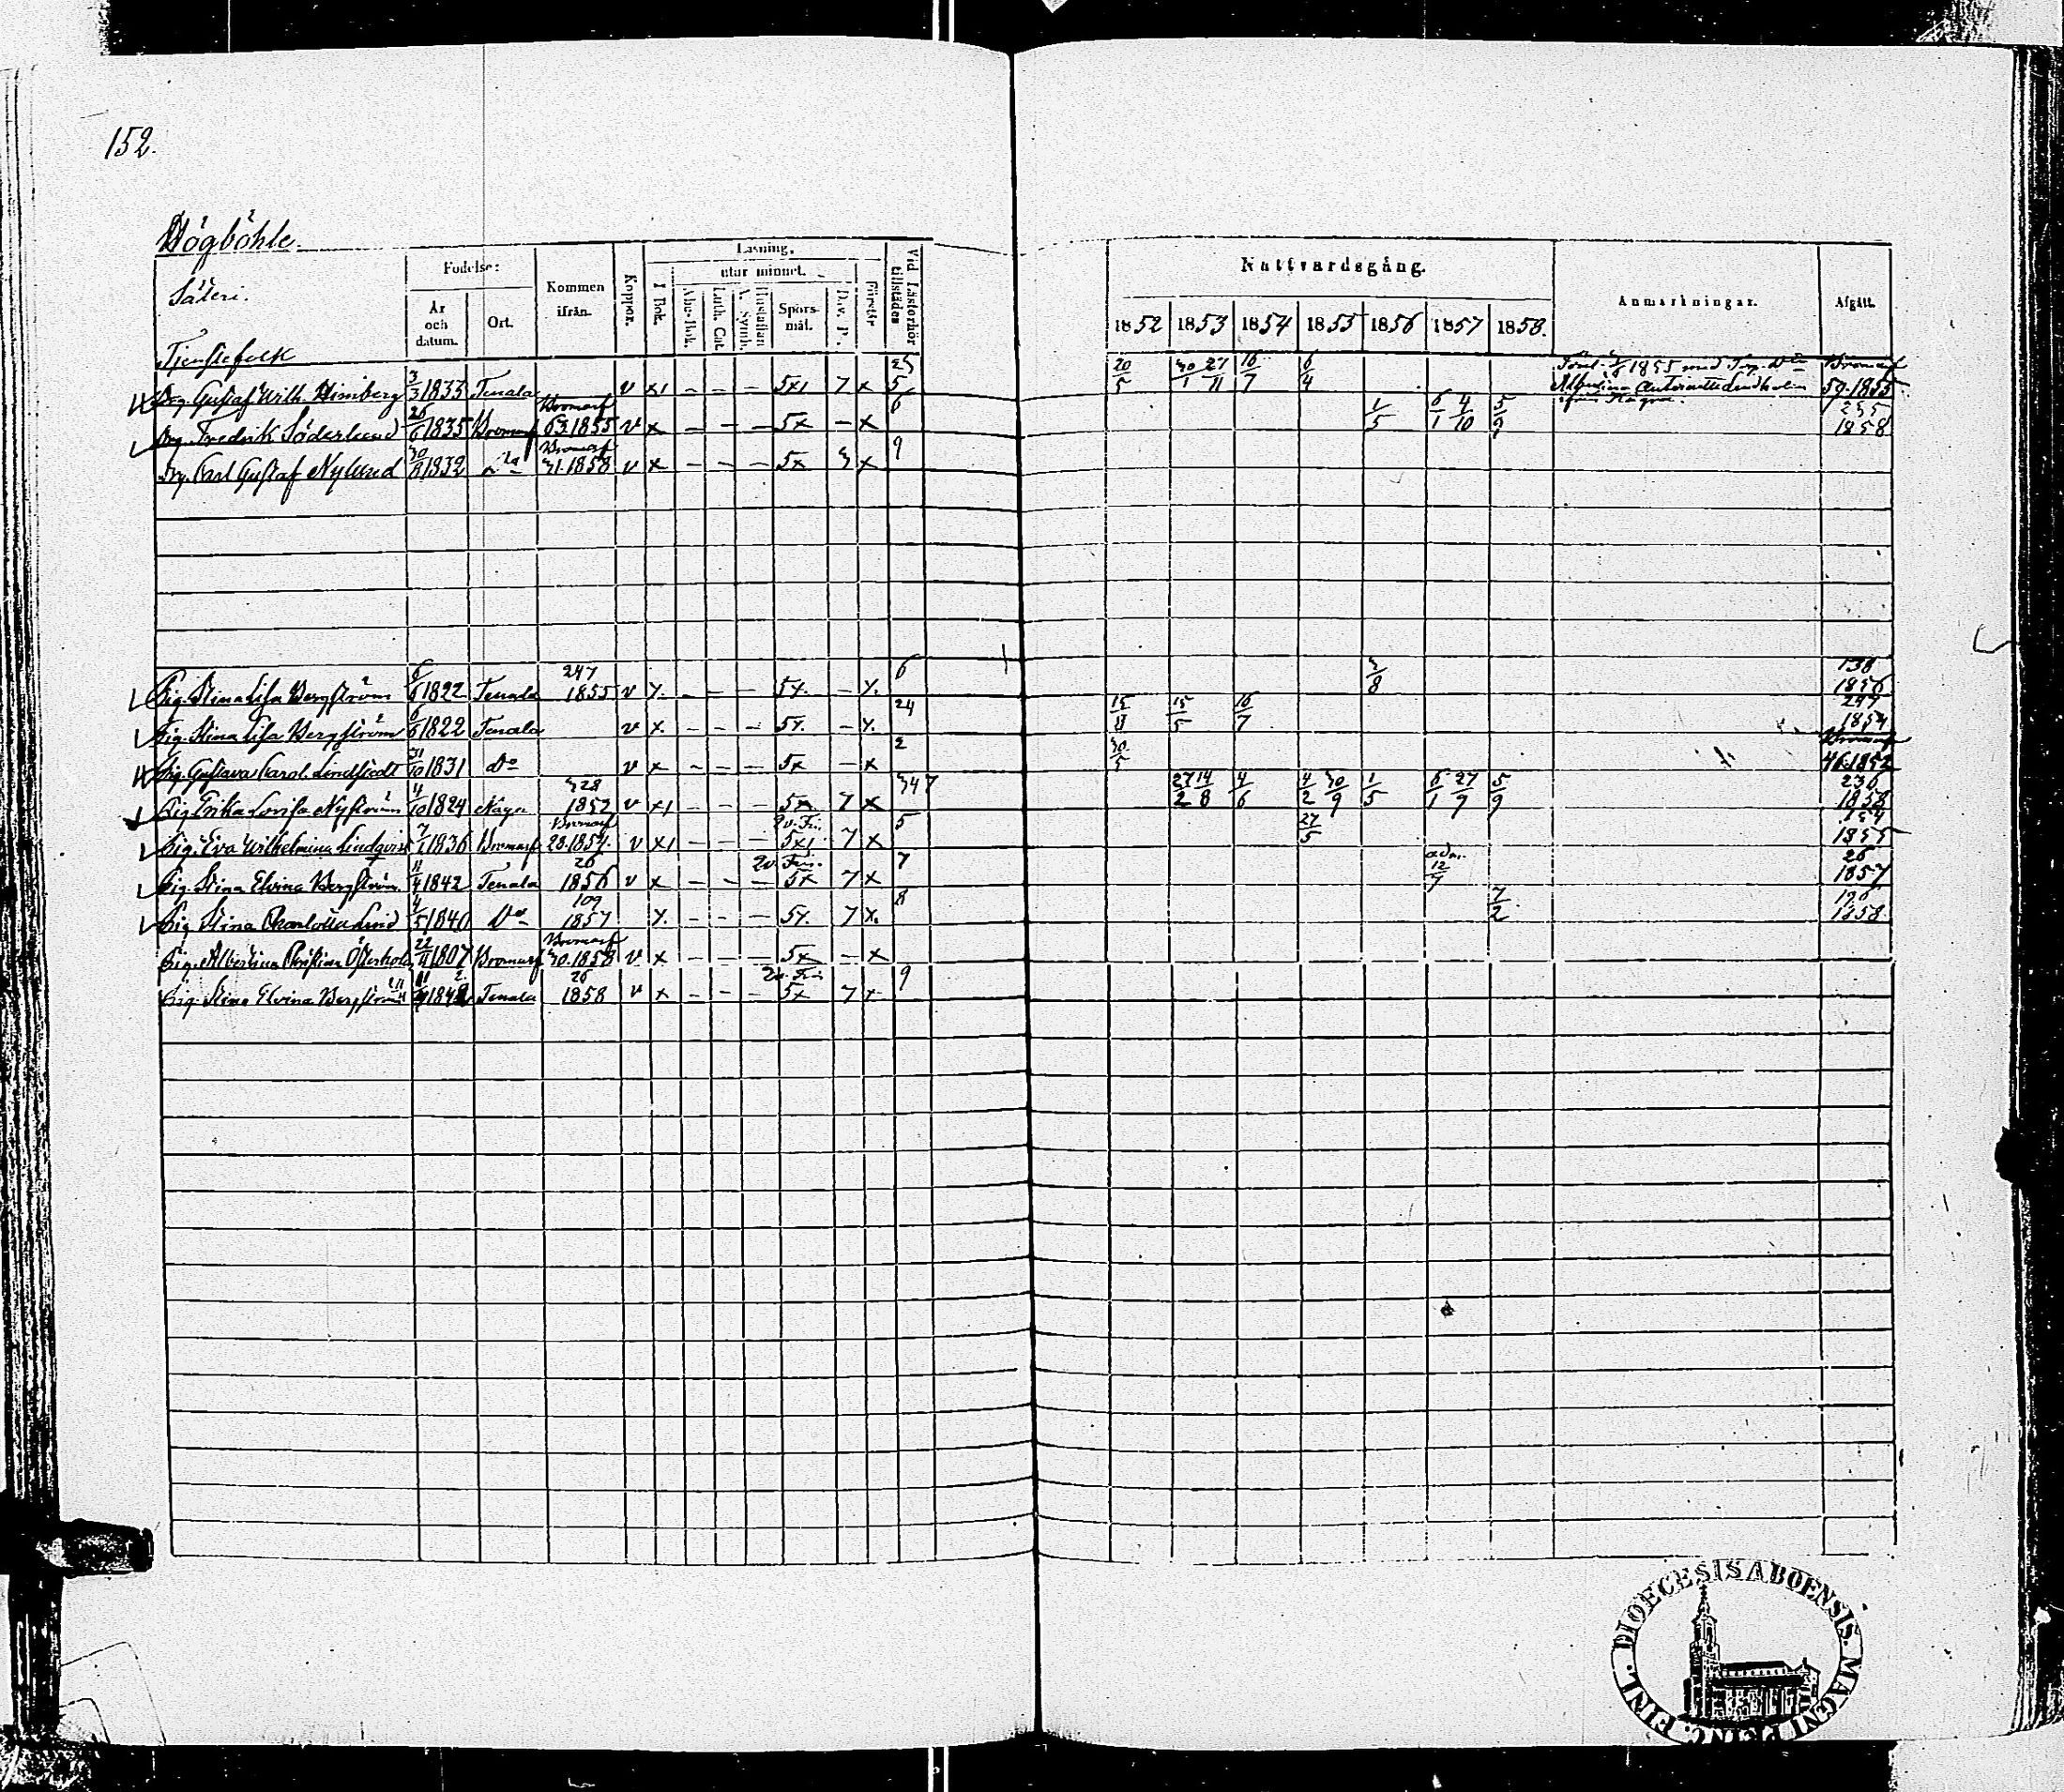 152.
Högböhle.
Säteri.
Födelse:
År och datum.
Ort.
Kommen ifrån.
Koppor.
Läsning.
I Bok.
utur minnet.
Abc-Bok.
Luth. Cat.
A. Symb.
Hustaflan
Spörsmål.
D. v. P.
Förstår
Vid Läsförhör tillstädes
Nattvardsgång.
1852 1853 1854 1855 1856 1857 1858.
Anmärkningar.
Afgått.
Tjenstefolk
Drg. Gustaf Wilh. Himberg 3/3 1833 Tenala v x1 – – – 5x1 7 x 5 20/5 30/1 27/11 16/7 6/4 1855 med Albertina Antoinette Lindholm Bromarf 59.1855
Drg. Fredrik Söderlund 26/6 1835 Bromarf Bromarf 63.1855 v x – – – 5x – x 6 1/5 6/1 4/10 5/9 235 1858
Drg. Carl Gustaf Nylund 30/8 1832 Bromarf 31.1858 v x – – – 5x 3 x 9
Pig. Stina Lisa Bergström 6/6 1822 Tenala 247 1855 v x. – – – 5x. – x. 6 3/8 138 1856
Pig. Stina Lisa Bergström 6/6 1822 Tenala v x. – – – 5x. – x. 24 15/8 15/5 16/7 247 1854
Pig. Gustava Carol. Lindstedt 31/10 1831 do v x – – – 5x – x 2 30/5 Bromarf 46.1852
Pig. Erika Lovisa Nyström 4/10 1824 328 1852 v x1 – – – 5x 7 x 347 27/2 14/8 4/6 4/2 30/9 1/5 6/1 27/9 5/9 236 1858
Pig. Eva Wilhelmina Lindqvist 7/1 1836 Bromarf Bromarf 28.1854. v x1 – – – 5x1 7 x 5 27/5 154 1855
Pig. Stina Elvina Bergström 11/4 1842 Tenala 26 1856 v x – – – 5x 7 x 7 adm. 12/7 26 1857
Pig. Stina Charlotta Lind 4/5 1840 Do 109 1857 x. – – – 5x. 7 x. 8 7/2 196 1858
Pig. Albertina Christina Österholm 22/11 1807 Bromarf Bromarf 30.1858 v x – – – 5x – x
Pig. Stina Elvina Bergström 11/4 1842 Tenala 26 1858 v x – – – 5x 7 x 9
DIOECESIS ABOENSIS. MAGNI PRINC. FINL.